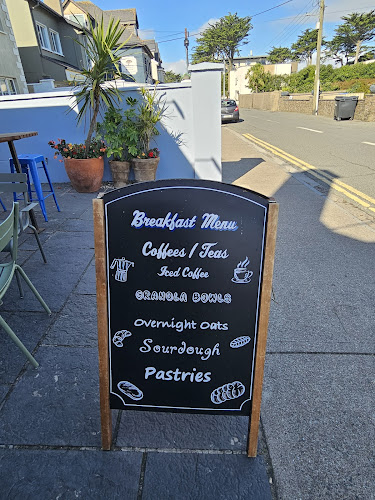 Breakfast Menu
Coffees / Teas
Iced Coffee
GRANOLA BOWLS
Overnight Oats
Sourdough
Pastries